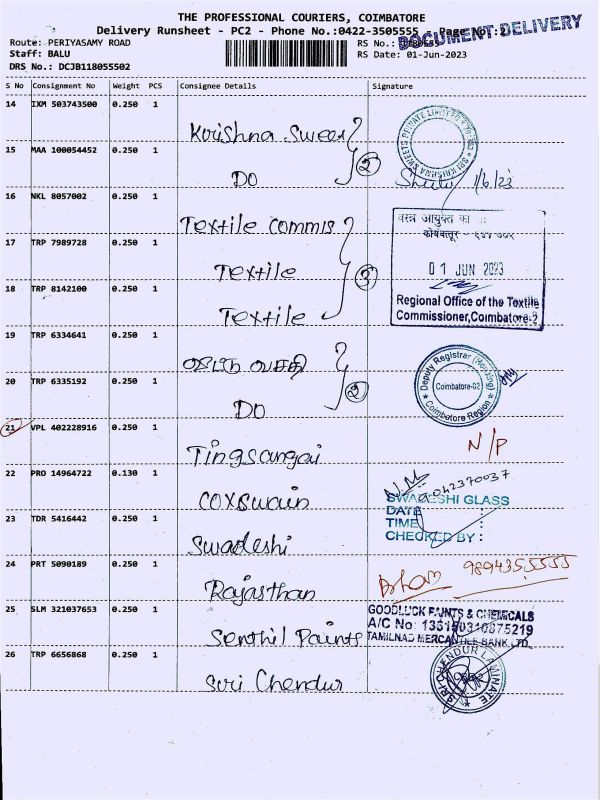 THE PROFESSIONAL COURIERS, COIMBATORE
Delivery Runsheet - PC2 - Phone No.:0422-3505555 Page No: 2
DOCUMENT DELIVERY
Route: PERIYASAMY ROAD
RS No.:
Staff: BALU
RS Date: 01-Jun-2023
DRS No.: DCJB118055502
S No Consignment No Weight PCS Consignee Details Signature
14 IXM 503743500 0.250 1
Krishna Sweet
SRI KRISHNA SWEETS PRIVATE LIMITED
15 MAA 100054452 0.250 1
DO
2
1/6/23
16 NKL 8057002 0.250 1
Textile Commis
वस्त्र आयुक्त का
कोयंबत्तूर -
17 TRP 7989728 0.250 1
Textile
3
01 JUN 2023
18 TRP 8142100 0.250 1
Textile
Regional Office of the Textile
Commissioner,Coimbatore-2
19 TRP 6334641 0.250 1
வீட்டு வசதி
Deputy Registrar (Housing)
Coimbatore-02
Coimbatore Region
20 TRP 6335192 0.250 1
DO
2
21 VPL 402228916 0.250 1
Tingsangai
N/P
22 PRO 14964722 0.130 1
Coxswain
9042370037
SWADESHI GLASS
DATE :
TIME :
CHECKED BY :
23 TDR 5416442 0.250 1
Swadeshi
24 PRT 5090189 0.250 1
Rajasthan
9894355555
25 SLM 321037653 0.250 1
Senthil Paints
GOODLUCK PAINTS & CHEMICALS
A/C No:
TAMILNAD MERCANTILE BANK LTD.
26 TRP 6656868 0.250 1
Sri Chendur
SRI CHENDUR LAMINATE